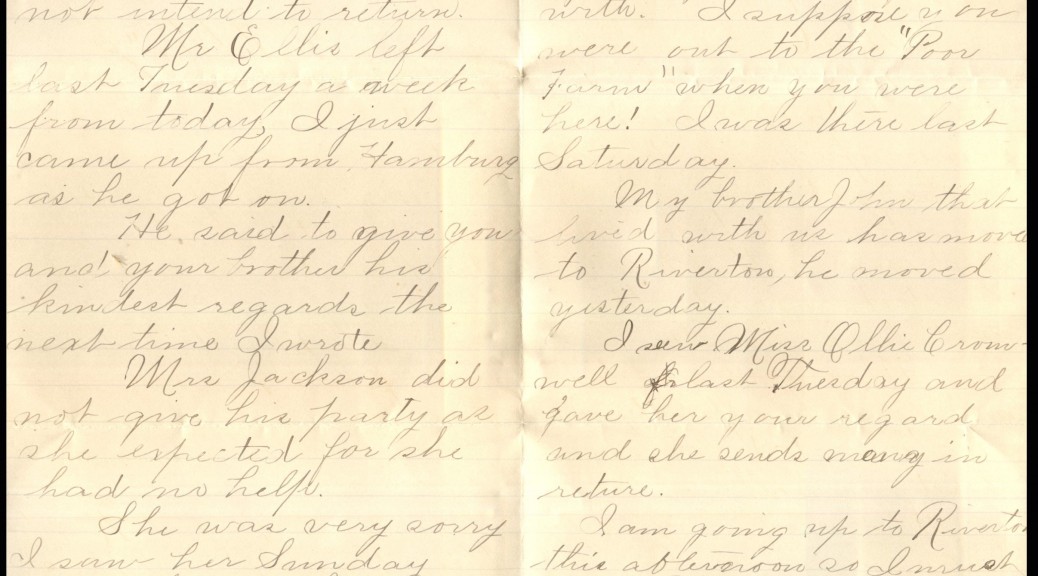 not intend to return.
Mr Ellis left
last Tuesday a week
from today, I just
came up from Hamburg
as he got on.
He said to give you
and your brother his
kindest regards the
next time I wrote
Mrs Jackson did
not give his party as
she expected for she
had no help.
She was very sorry
I saw her Sunday
with. I suppose you
were out to the "Poor
Farm" when you were
here! I was there last
Saturday.
My brother John that
lived with us has moved
to Riverton, he moved
yesterday.
I saw Miss Ollie Crom-
well last Tuesday and
gave her your regard
and she sends many in
reture.
I am going up to Riverton
this afternoon so I must